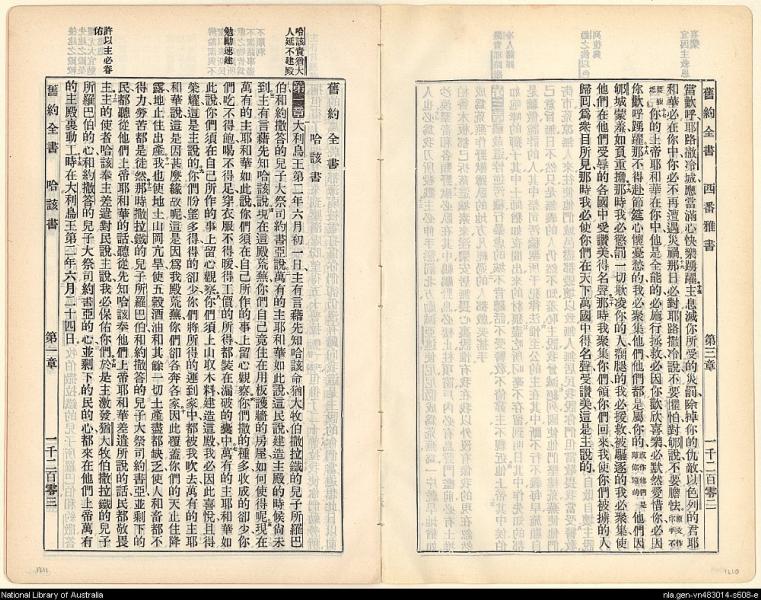 舊約全書 西番雅書 第三章 一千二百零二
當歡呼耶路撒冷城應當滿心快樂踴躍主息滅你所受的災罰除掉你的仇敵以色列的君耶
和華必在你中你必不再遭遇災禍那日必對耶路撒冷說不要懼怕對郇說不要膽怯
你的上帝耶和華在你中他是全能的必施行拯救必因你歡欣喜樂必默然愛惜你必因
你歡呼踴躍那不得赴節筵心懷憂愁的我必聚集他們他們都是屬你的他們因
郇城蒙羞如負重擔那時我必懲罰一切欺凌你的人瘸腿的我必援救被驅逐的我必聚集使
他們在他們受辱的各國中受讚美得名聲那時我聚集你們領你們回來我使你們被擄的人
歸回爲衆目所見那時我必使你們在天下萬國中得名聲受讚美這是主說的
舊約全書
哈該書
哈該責猶大
人延不建殿
第一章大利烏王第二年六月初一日主有言藉先知哈該命猶大牧伯撒拉鐵的兒子所羅巴
伯和約撒答的兒子大祭司約書亞說萬有的主耶和華如此說這民說建造主殿的時候尙未
到主有言藉先知哈該說現在這殿荒蕪你們自己竟住在用板護牆的房屋如何使得呢現在
萬有的主耶和華如此說你們須在自己所作的事上留心觀察你們撒的種多收成的卻少你
們吃不得飽喝不得足穿衣服不得暖得工價的所得都裝在漏破的囊中萬有的主耶和華如
勉勵速建
此說你們須在自己所作的事上留心觀察你們須上山取木料建造這殿我必因此喜悅且得
榮耀這是主說的你們盼望多得得的卻少你們將所得的運到家中都被我吹去萬有的主耶
和華說這是因甚麼緣故呢這是因爲我殿荒蕪你們卻各奔各家因此覆蓋你們的天止住降
露地止住出產我也使地土山岡亢旱使五穀酒油和其餘一切土產盡都缺乏使人和畜都不
得力勞苦都是徒然那時撒拉鐵的兒子所羅巴伯和約撒答的兒子大祭司約書亞並剩下的
民都聽從他們上帝耶和華的話聽從先知哈該奉他們上帝耶和華差遣所說的話民都敬畏
許以主必眷
佑
主主的使者哈該奉主差遣對民說主說我必保佑你們於是主激發猶大牧伯撒拉鐵的兒子
所羅巴伯的心和約撒答的兒子大祭司約書亞的心並剩下的民的心都來在他們上帝萬有
的主殿裏動工時在大利烏王第二年六月二十四日
舊約全書 哈該書 第一章 一千二百零三
National Library of Australia
nla.gen-vn483014-s608-e